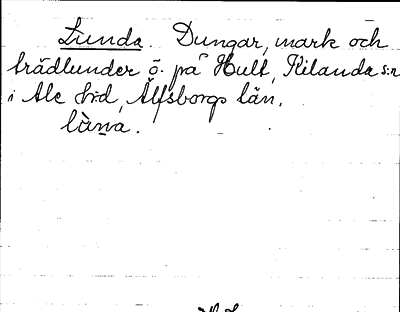 Lunda. Dungar, mark och
trädlunder ö. på Hult, Kilanda s:n
i Ale h:d, Älfsborgs län.